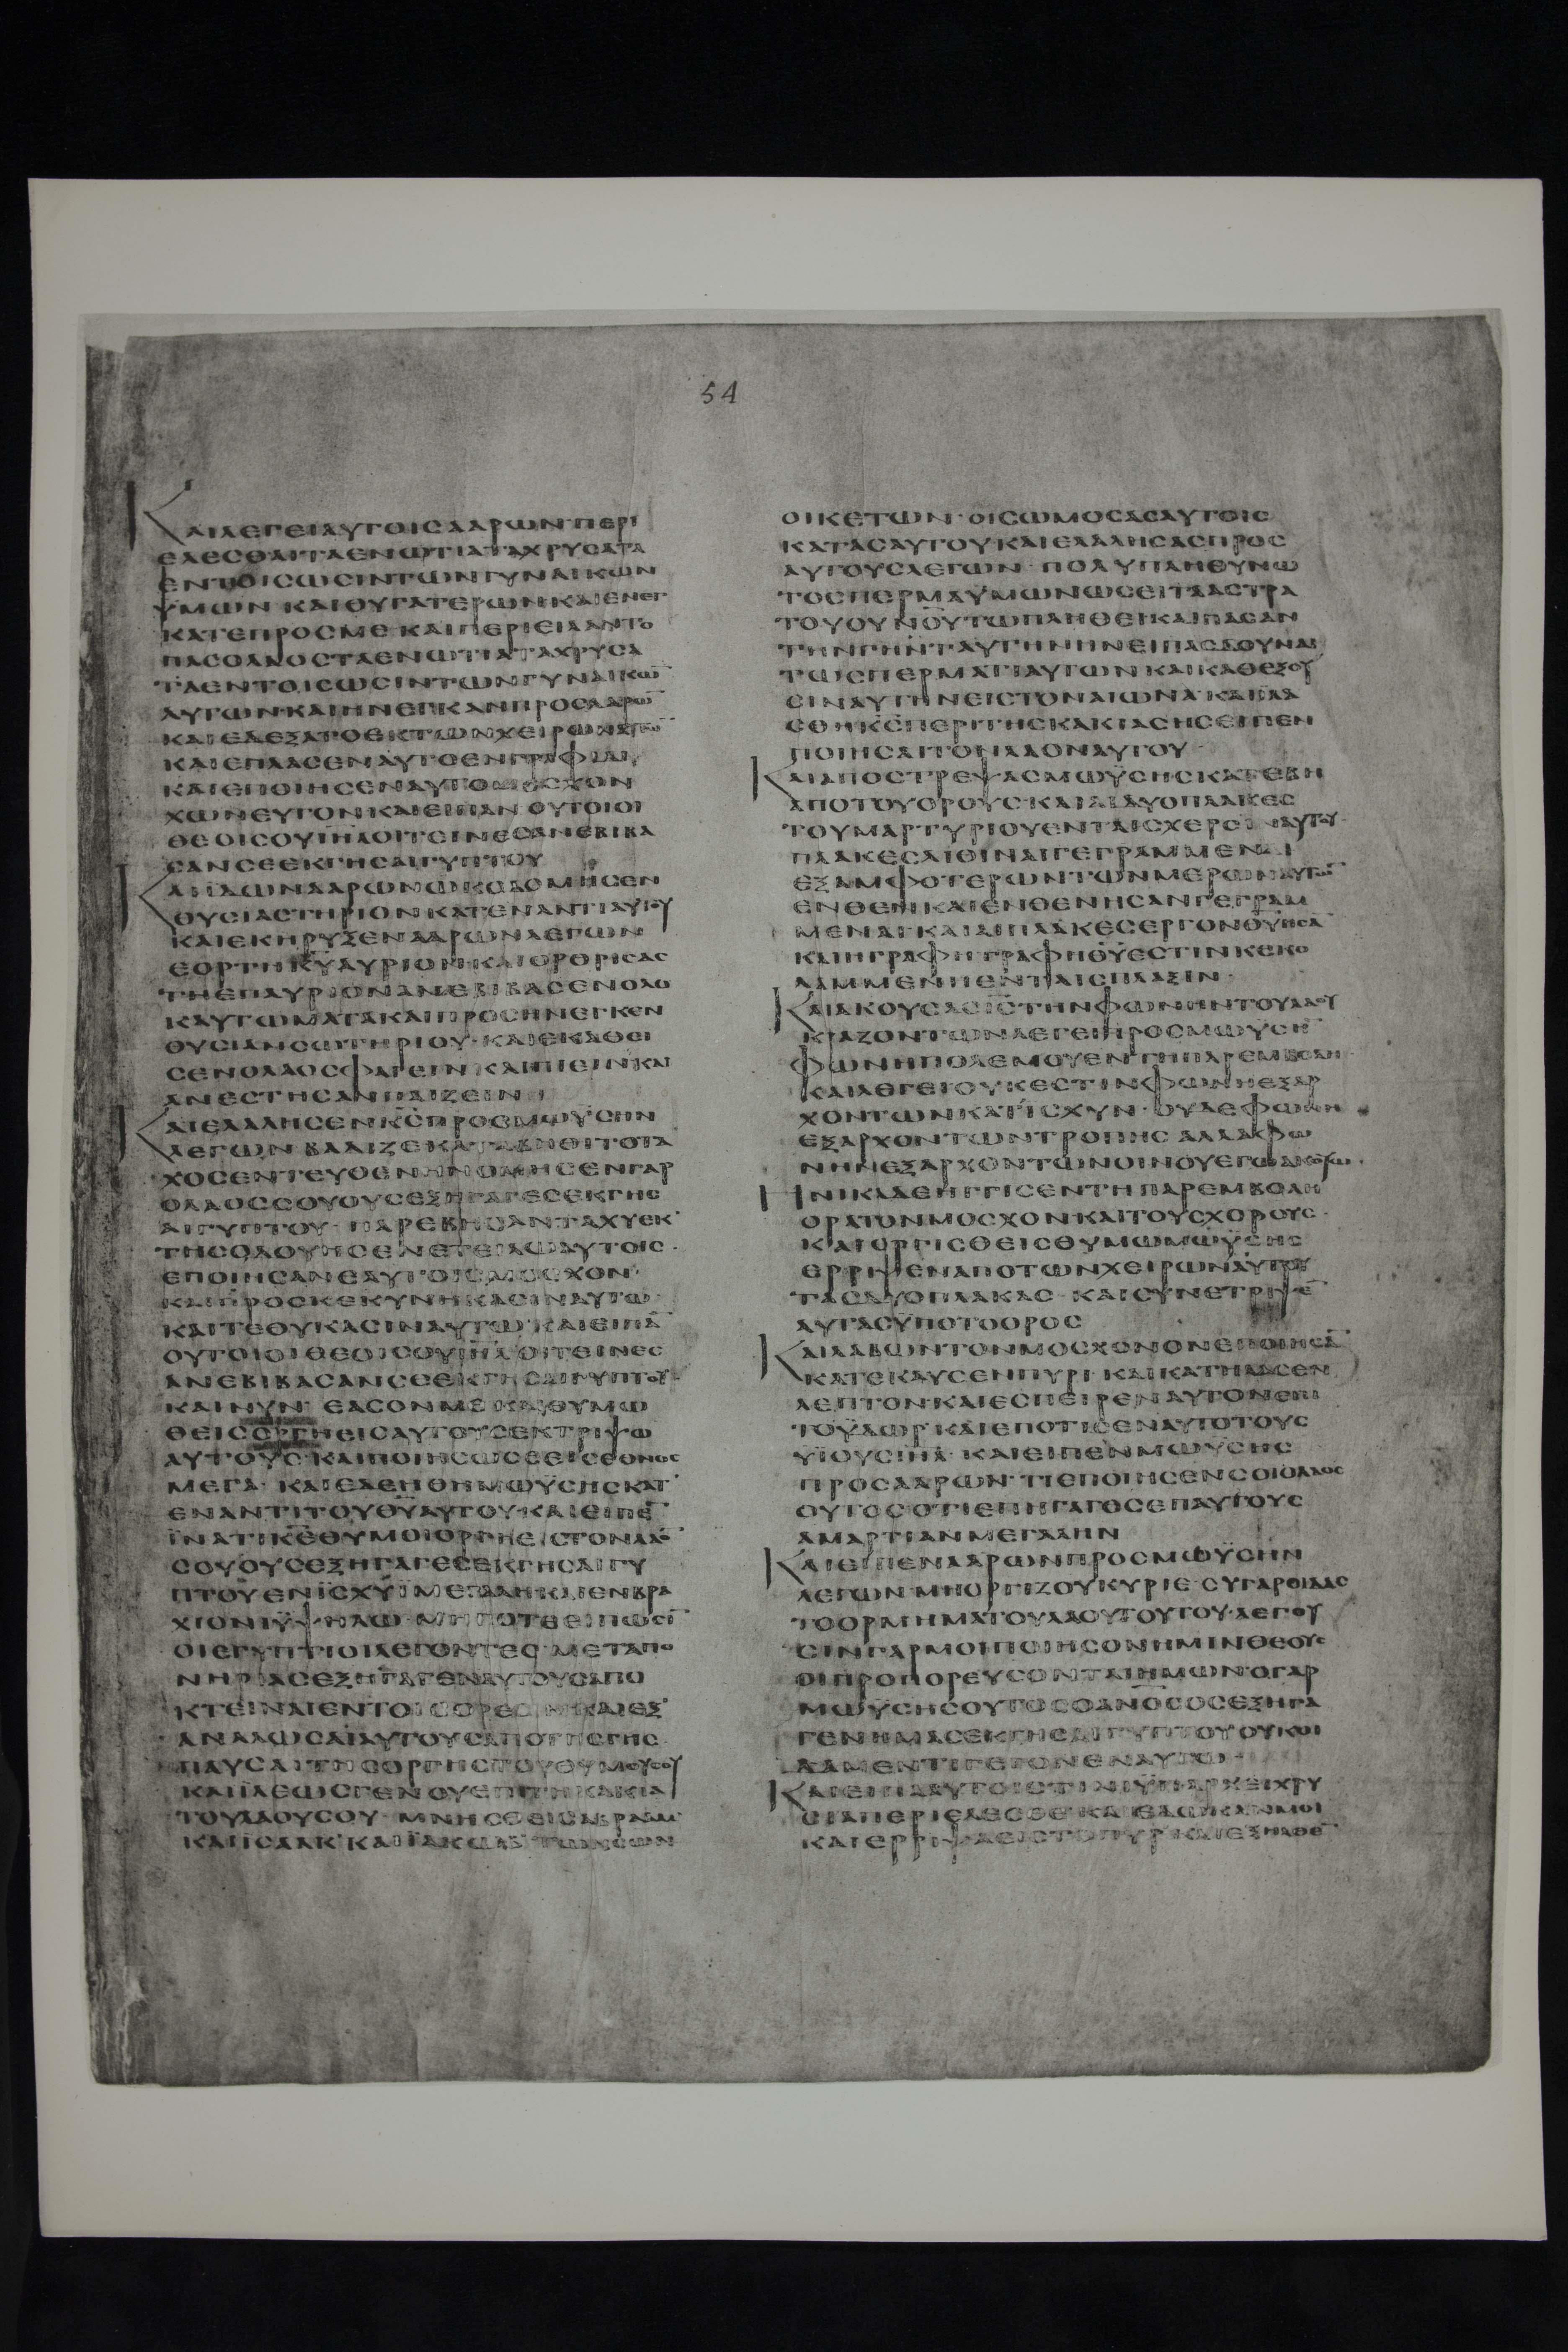 54
ΚΑΙΛΕΓΕΙΑΥΤΟΙΣΑΑΡΩΝ·ΠΕΡΙ
ΕΛΕΣΘΑΙΤΑΕΝΩΤΙΑΤΑΧΡΥΣΑΤΑ
ΕΝΤΟΙΣΩΣΙΝΤΩΝΓΥΝΑΙΚΩΝ
ΥΜΩΝ ΚΑΙΘΥΓΑΤΕΡΩΝ·ΚΑΙΕΝΕΓ
ΚΑΤΕΠΡΟΣΜΕ ΚΑΙΠΕΡΙΕΙΛΑΝΤΟ
ΠΑΣΟΛΑΟΣΤΑΕΝΩΤΙΑΤΑΧΡΥΣΑ
ΤΑΕΝΤΟΙΣΩΣΙΝΤΩΝΓΥΝΑΙΚΩ̅
ΑΥΤΩΝ·ΚΑΙΗΝΕΓΚΑΝΠΡΟΣΑΑΡΩ̅
ΚΑΙΕΔΕΞΑΤΟΕΚΤΩΝΧΕΙΡΩΝΑΥΤΩ̅
ΚΑΙΕΠΛΑΣΕΝΑΥΤΟΕΝΓΡΑΦΙΔΙ
ΚΑΙΕΠΟΙΗΣΕΝΑΥΤΟΜΟΣΧΟΝ
ΧΩΝΕΥΤΟΝ·ΚΑΙΕΙΠΑΝ ΟΥΤΟΙΟΙ
ΘΕΟΙΣΟΥΙΗΛΟΙΤΕΙΝΕΣΑΝΕΒΙΒΑ
ΣΑΝΣΕΕΚΓΗΣΑΙΓΥΠΤΟΥ
ΚΑΙΪΔΩΝΑΑΡΩΝΩΚΟΔΟΜΗΣΕΝ
ΘΥΣΙΑΣΤΗΡΙΟΝΚΑΤΕΝΑΝΤΙΑΥΤΟΥ
ΚΑΙΕΚΗΡΥΞΕΝΑΑΡΩΝΛΕΓΩΝ
ΕΟΡΤΗΚ̅Υ̅ΑΥΡΙΟΝ·ΚΑΙΟΡΘΡΙΣΑΣ
ΤΗΕΠΑΥΡΙΟΝΑΝΕΒΙΒΑΣΕΝΟΛΟ
ΚΑΥΤΩΜΑΤΑΚΑΙΠΡΟΣΗΝΕΓΚΕΝ
ΘΥΣΙΑΝΣΩΤΗΡΙΟΥ·ΚΑΙΕΚΑΘΕΙ
ΣΕΝΟΛΑΟΣΦΑΓΕΙΝ ΚΑΙΠΙΕΙΝΚΑΙ
ΑΝΕΣΤΗΣΑΝΠΑΙΖΕΙΝ
ΚΑΙΕΛΑΛΗΣΕΝΚ̅Σ̅ΠΡΟΣΜΩΫΣΗΝ
ΛΕΓΩΝ ΒΑΔΙΖΕΚΑΤΑΒΗΘΙΤΟΤΑ
ΧΟΣΕΝΤΕΥΘΕΝΗΝΟΜΗΣΕΝΓΑΡ
ΟΛΑΟΣΣΟΥΟΥΣΕΞΗΓΑΓΕΣΕΚΓΗΣ
ΑΙΓΥΠΤΟΥ· ΠΑΡΕΒΗΣΑΝΤΑΧΥΕΚ
ΤΗΣΟΔΟΥΗΣΕΝΕΤΕΙΛΩΑΥΤΟΙΣ·
ΕΠΟΙΗΣΑΝΕΑΥΤΟΙΣΜΟΣΧΟΝ·
ΚΑΙΠΡΟΣΚΕΚΥΝΗΚΑΣΙΝΑΥΤΩ·
ΚΑΙΤΕΘΥΚΑΣΙΝΑΥΤΩ·ΚΑΙΕΙΠΑ̅
ΟΥΤΟΙΟΙΘΕΟΙΣΟΥΙΗΛΟΙΤΕΙΝΕΣ
ΑΝΕΒΙΒΑΣΑΝΣΕΕΚΓΗΣΑΙΓΥΠΤΟΥ·
ΚΑΙΝΥΝ ΕΑΣΟΝΜΕ ΚΑΙΘΥΜΩ
ΘΕΙΣΟΡΓΗΕΙΣΑΥΤΟΥΣΕΚΤΡΙΨΩ
ΑΥΤΟΥΣ·ΚΑΙΠΟΙΗΣΩΣΕΕΙΣΕΘΝΟΣ
ΜΕΓΑ· ΚΑΙΕΔΕΗΘΗΜΩΫΣΗΣΚΑΤ
ΕΝΑΝΤΙΤΟΥΘ̅Υ̅ΑΥΤΟΥ·ΚΑΙΕΙΠΕ̅
ΪΝΑΤΙΚ̅Ε̅ΘΥΜΟΙΟΡΓΗΕΙΣΤΟΝΛΑΟ̅
ΣΟΥΟΥΣΕΞΗΓΑΓΕΣΕΚΓΗΣΑΙΓΥ
ΠΤΟΥΕΝΪΣΧΥΪΜΕΓΑΛΗΚΑΙΕΝΒΡΑ
ΧΙΟΝΙΥΨΗΛΩ·ΜΗΠΟΤΕΕΙΠΩΣΙ̅
ΟΙΕΓΥΠΤΙΟΙΛΕΓΟΝΤΕΣ·ΜΕΤΑΠΟ
ΝΗΡΙΑΣΕΞΗΓΑΓΕΝΑΥΤΟΥΣΑΠΟ
ΚΤΕΙΝΑΙΕΝΤΟΙΣΟΡΕΣΙΝΚΑΙΕΞ
ΑΝΑΛΩΣΑΙΑΥΤΟΥΣΑΠΟΤΗΣΓΗΣ
ΠΑΥΣΑΙΤΗΣΟΡΓΗΣΤΟΥΘΥΜΟΥΣΟΥ
ΚΑΙΪΛΕΩΣΓΕΝΟΥΕΠΙΤΗΚΑΚΙΑ
ΤΟΥΛΑΟΥΣΟΥ·ΜΝΗΣΘΕΙΣΑΒΡΑΑΜ
ΚΑΙΪΣΑΑΚ ΚΑΙΪΑΚΩΒ ΤΩΝΣΩΝ
ΟΙΚΕΤΩΝ·ΟΙΣΩΜΟΣΑΣΑΥΤΟΙΣ
ΚΑΤΑΣΑΥΤΟΥ·ΚΑΙΕΛΑΛΗΣΑΣΠΡΟΣ
ΑΥΤΟΥΣΛΕΓΩΝ·ΠΟΛΥΠΛΗΘΥΝΩ
ΤΟΣΠΕΡΜΑΫΜΩΝΩΣΕΙΤΑΑΣΤΡΑ
ΤΟΥΟΥΝΟΥΤΩΠΛΗΘΕΙ·ΚΑΙΠΑΣΑΝ
ΤΗΝΓΗΝΤΑΥΤΗΝΗΝΕΙΠΑΣΔΟΥΝΑΙ
ΤΩΣΠΕΡΜΑΤΙΑΥΤΩΝΚΑΙΚΑΘΕΞΟΥ
ΣΙΝΑΥΤΗΝΕΙΣΤΟΝΑΙΩΝΑ·ΚΑΙΙΛΑ
ΣΘΗΚ̅Σ̅ΠΕΡΙΤΗΣΚΑΚΙΑΣΗΣΕΙΠΕΝ
ΠΟΙΗΣΑΙΤΟΝΛΑΟΝΑΥΤΟΥ·
ΚΑΙΑΠΟΣΤΡΕΨΑΣΜΩΫΣΗΣΚΑΤΕΒΗ
ΑΠΟΤΟΥΟΡΟΥΣ·ΚΑΙΑΙΔΥΟΠΛΑΚΕΣ
ΤΟΥΜΑΡΤΥΡΙΟΥΕΝΤΑΙΣΧΕΡΣΙΝΑΥΤΟΥ·
ΠΛΑΚΕΣΛΙΘΙΝΑΙΓΕΓΡΑΜΜΕΝΑΙ
ΕΞΑΜΦΟΤΕΡΩΝΤΩΝΜΕΡΩΝΑΥΤΩ̅
ΕΝΘΕΝΚΑΙΕΝΘΕΝΗΣΑΝΓΕΓΡΑΜ
ΜΕΝΑΙ·ΚΑΙΑΙΠΛΑΚΕΣΕΡΓΟΝΘ̅Υ̅ΗΣΑ̅
ΚΑΙΗΓΡΑΦΗΓΡΑΦΗΘ̅Υ̅ΕΣΤΙΝΚΕΚΟ
ΛΑΜΜΕΝΗΕΝΤΑΙΣΠΛΑΞΙΝ·
ΚΑΙΑΚΟΥΣΑΣΙ̅Σ̅ΤΗΝΦΩΝΗΝΤΟΥΛΑΟΥ
ΚΡΑΖΟΝΤΩΝΛΕΓΕΙΠΡΟΣΜΩΥΣΗ̅
ΦΩΝΗΠΟΛΕΜΟΥΕΝΤΗΠΑΡΕΜΒΟΛΗ·
ΚΑΙΛΕΓΕΙΟΥΚΕΣΤΙΝΦΩΝΗΕΞΑΡ
ΧΟΝΤΩΝΚΑΤΪΣΧΥΝ·ΟΥΔΕΦΩΝΗ
ΕΞΑΡΧΟΝΤΩΝΤΡΟΠΗΣ ΑΛΛΑΦΩ
ΝΗΝΕΞΑΡΧΟΝΤΩΝΟΙΝΟΥΕΓΩΑΚΟΥΩ·
ΗΝΙΚΑΔΕΗΓΓΙΣΕΝΤΗΠΑΡΕΜΒΟΛΗ
ΟΡΑΤΟΝΜΟΣΧΟΝΚΑΙΤΟΥΣΧΟΡΟΥΣ·
ΚΑΙΟΡΓΙΣΘΕΙΣΘΥΜΩΜΩΫΣΗΣ
ΕΡΡΙΨΕΝΑΠΟΤΩΝΧΕΙΡΩΝΑΥΤΟΥ
ΤΑΣΔΥΟΠΛΑΚΑΣ· ΚΑΙΣΥΝΕΤΡΙΨΕ̅
ΑΥΤΑΣΫΠΟΤΟΟΡΟΣ
ΚΑΙΛΑΒΩΝΤΟΝΜΟΣΧΟΝΟΝΕΠΟΙΗΣΑ̅
ΚΑΤΕΚΑΥΣΕΝΠΥΡΙ· ΚΑΙΚΑΤΗΛΑΣΕΝ
ΛΕΠΤΟΝΚΑΙΕΣΠΕΙΡΕΝΑΥΤΟΝΕΠΙ
ΤΟΫΔΩΡ ΚΑΙΕΠΟΤΙΣΕΝΑΥΤΟΤΟΥΣ
ΫΙΟΥΣΙΗΛ· ΚΑΙΕΙΠΕΝΜΩΥΣΗΣ
ΠΡΟΣΑΑΡΩΝ·ΤΙΕΠΟΙΗΣΕΝΣΟΙΟΛΑΟΣ
ΟΥΤΟΣΟΤΙΕΠΗΓΑΓΟΣΕΠΑΥΤΟΥΣ
ΑΜΑΡΤΙΑΝΜΕΓΑΛΗΝ
ΚΑΙΕΙΠΕΝΑΑΡΩΝΠΡΟΣΜΩΫΣΗΝ
ΛΕΓΩΝ·ΜΗΟΡΓΙΖΟΥΚΥΡΙΕ·ΣΥΓΑΡΟΙΔΑΣ
ΤΟΟΡΜΗΜΑΤΟΥΛΑΟΥΤΟΥΤΟΥ·ΛΕΓΟΥ
ΣΙΝΓΑΡΜΟΙΠΟΙΗΣΟΝΗΜΙΝΘΕΟΥΣ
ΟΙΠΡΟΠΟΡΕΥΣΟΝΤΑΙΗΜΩΝ·ΟΓΑΡ
ΜΩΫΣΗΣΟΥΤΟΣΟΑΝΟ̅Σ̅ΟΣΕΞΗΓΑ
ΓΕΝΗΜΑΣΕΚΓΗΣΑΙΓΥΠΤΟΥΟΥΚΟΙ
ΔΑΜΕΝΤΙΓΕΓΟΝΕΝΑΥΤΩ·
ΚΑΙΕΙΠΑΑΥΤΟΙΣΤΙΝΙΫΠΑΡΧΕΙΧΡΥ
ΣΙΑΠΕΡΙΕΛΕΣΘΕ·ΚΑΙΕΔΩΚΑΝΜΟΙ
ΚΑΙΕΡΡΙΨΑΕΙΣΤΟΠΥΡ ΚΑΙΕΞΗΛΘΕ̅